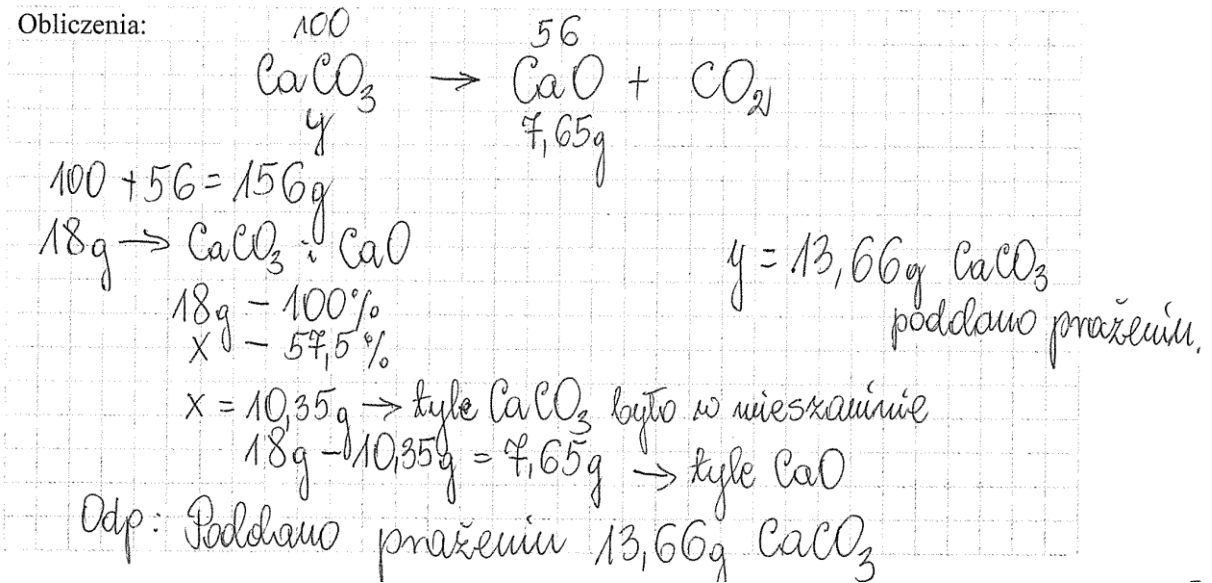 Obliczenia:
100 56
CaCO₃ → CaO + CO₂
y 7,65g
100 + 56 = 156g
18g → CaCO₃ i CaO
y = 13,66g CaCO₃
poddano prażeniu.
18g - 100%
x - 57,5%
x = 10,35g → tyle CaCO₃ było w mieszaninie
18g - 10,35g = 7,65g → tyle CaO
Odp: Poddano prażeniu 13,66g CaCO₃